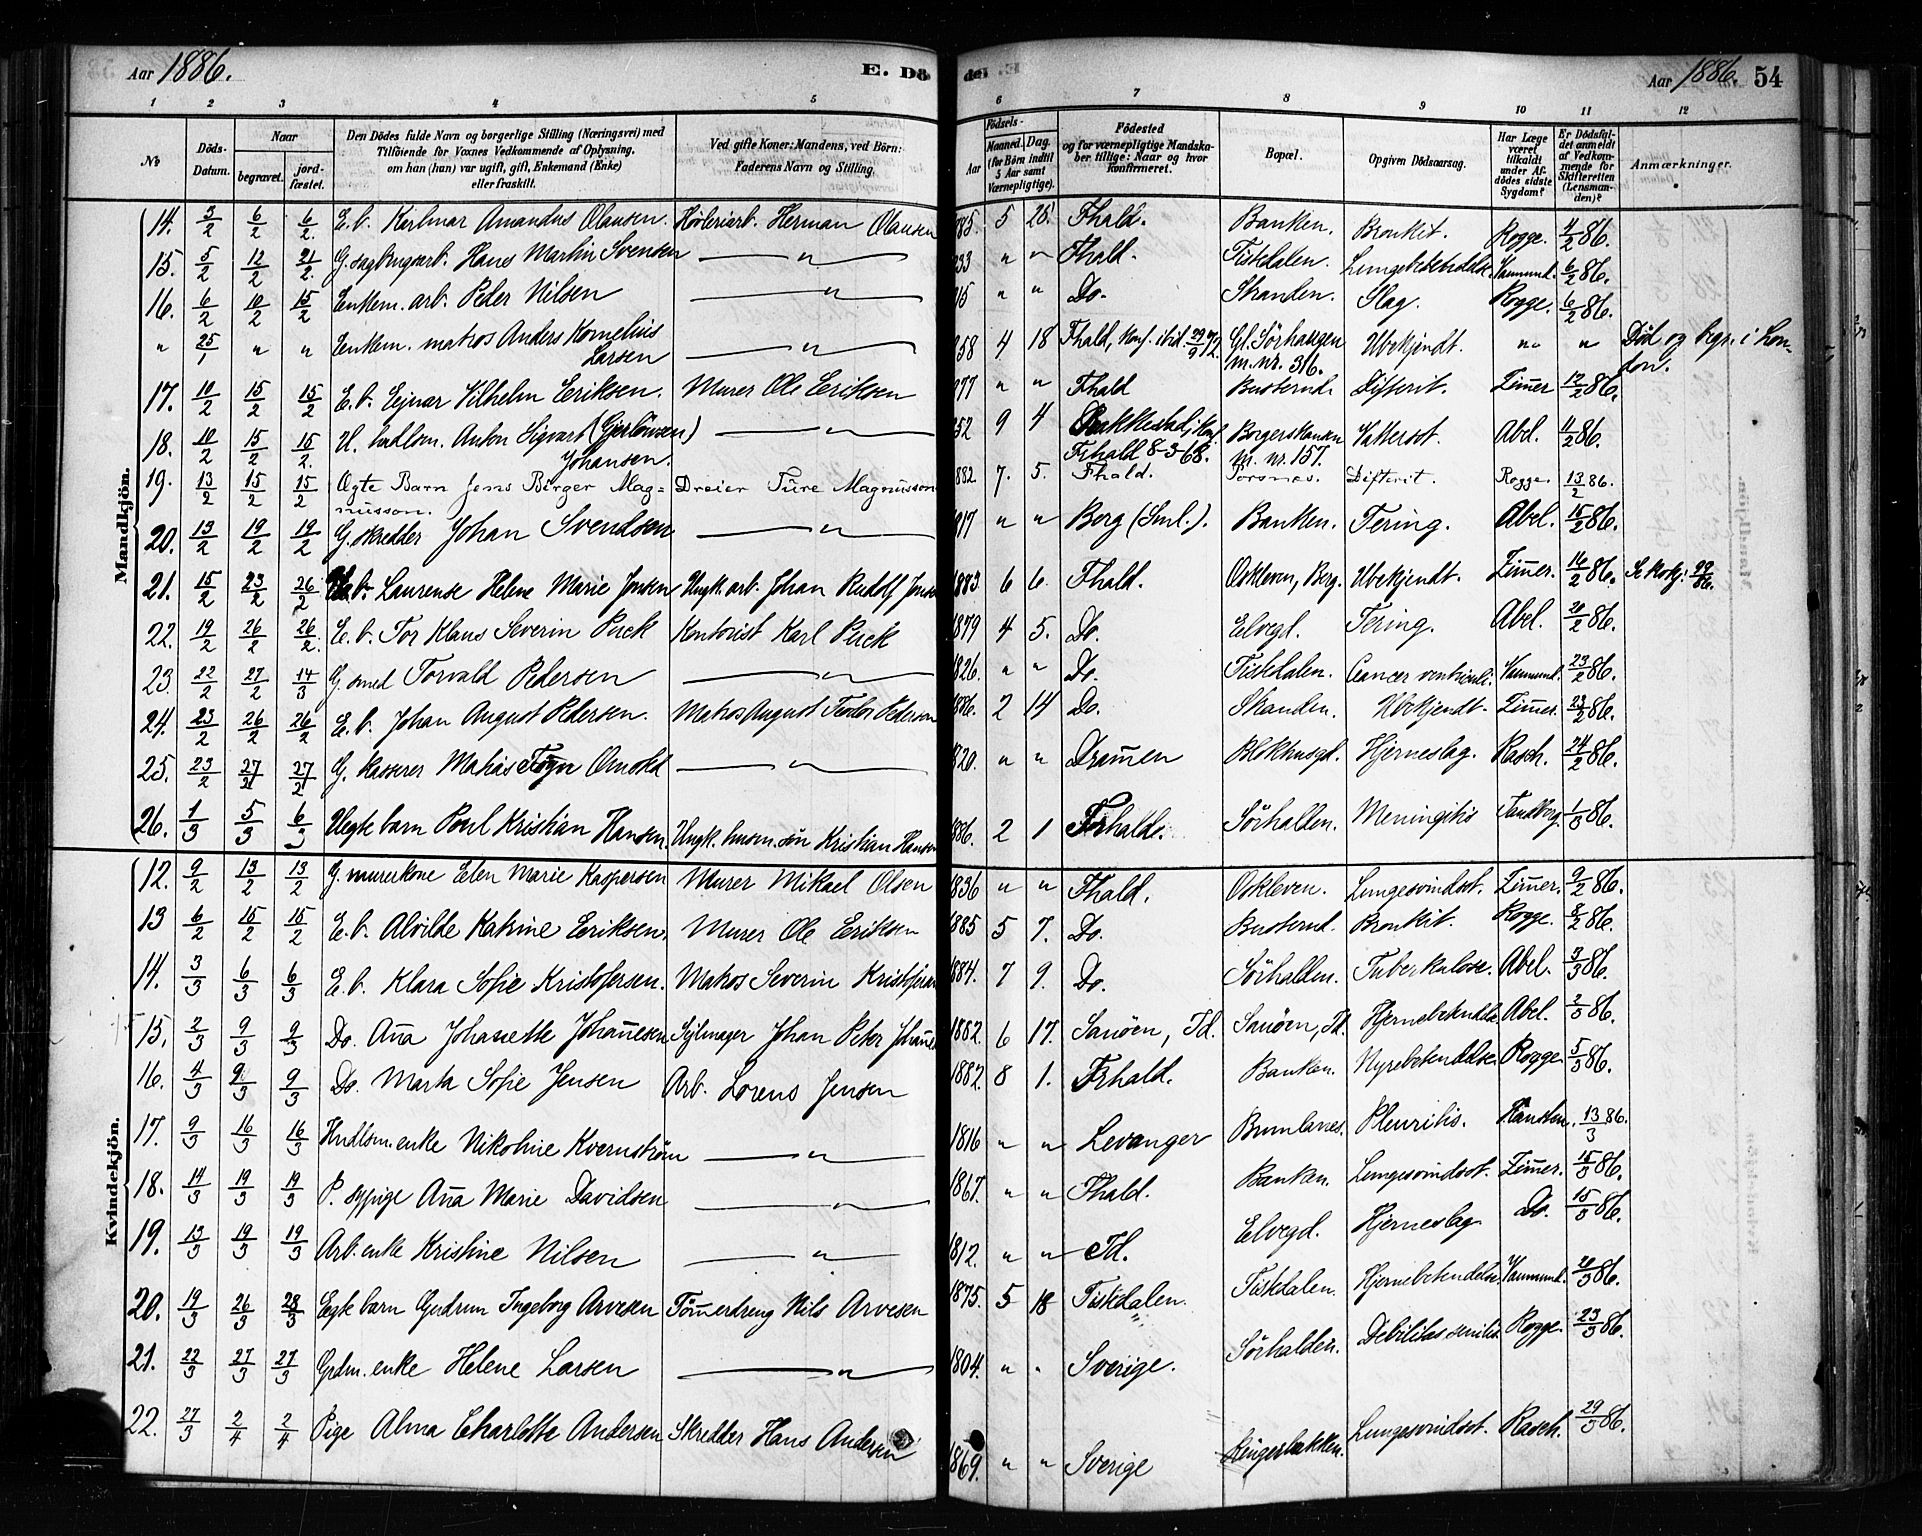 Aar 1886. E. Dö- dde. E. Aar 1886. 54
1 2 3 4 5 6 7 8 9 10 11 12
No Döds-Datum. Naar begravet. jord-fæstet. Den Dödes fulde Navn og borgerlige Stilling (Næringsvei) med Tilföiende for Voxnes Vedkommende af Oplysning, om han (hun) var ugift, gift, Enkemand (Enke) eller fraskilt. Ved gifte Koner: Mandens, ved Börn: Faderens Navn og Stilling. Födsels- Aar Maaned. Dag. (for Börn indtil 5 Aar samt Værnepligtige). Födested og for værnepligtige Mandskaber tillige: Naar og hvor konfirmeret. Bopæl. Opgiven Dödsaarsag. Har Læge været tilkaldt under Afdödes sidste Sygdom? Er Dödsfaldet anmeldt af Vedkommende for Skifteretten (Lensmanden)? Anmærkninger.
Mandkjön.
14. 3/2 6/2 6/2. E.b. Karlmar Amandus Olausen. Höileriarb. Herman Olausen 885. 5 25. Fhald. Banken. Bronkit. Rogge. 4/2 86.
15. 5/2 12/2 21/2. G. sagbrugarb. Hans Martin Svensen — " — 833 " " Fhald. Tistedalen. Lungebetendelse. Vammund. 6/2 86.
16. 6/2 10/2 15/2 Enkem. arb. Peder Nilsen — " — 15 " " Do. Skanden. Slag. Rogge. 6/2 86.
" 25/1 " " Enkem. matros Anders Kornelius Larsen — " — 858 4 18 Fhald, konf. ibid. 29/9 72. Gl. Sörhaugen m. nr. 316. Ubekjendt. " " Död og begr. i London.
17. 10/2 15/2 15/2 E.b. Ejnar Vilhelm Eriksen. Murer Ole Eriksen 877 " " Fhald Busterud. Difterit. Zimer 12/2 86.
18. 10/2 15/2 15/2. U. handlsm. Anton Sigvart (Gjerlöwsen) Johansen. — " — 852 9 4 Rakkestad; konf. Frhald 8-3-68. Borgerskansen m. nr. 157. Vattersot. Abel. 11/2 86.
19. 13/2 15/2 15/2 Ægte Barn Jens Birger Magnusson. Dreier Ture Magnusson 882 7. 5. Fhald. Torsnes. Difterit. Rogge. 13/2 86.
20. 13/2 19/2 19/2 G. skredder Johan Svendsen — " — 817 " " Berg (Sml.). Banken. Tering. Abel. 15/2 86.
21. 15/2 23/2 26/2 U.b. Laurense Helene Marie Jensen Ungk. arb. Johan Rudolf Jensen 1883 6 6. Fhald. Oskleven, Berg. Ubekjendt. Zimer. 16/2 86.
22. 19/2 26/2 26/2. E.b. Tor Klaus Severin Puck Kontorist Karl Puck 1879 4 5. Do. Elvegd. Tering. Abel. 20/2 86.
23. 22/2 27/2 14/3 G. smed Torvald Pedersen — " — 1826. " " Do. Tistedalen. Cancer ventriculi. Vammund. 23/2 86.
24. 23/2 26/2 26/2 E.b. Johan August Pedersen. Matros August Teodor Pedersen 1886. 2 14 Do. Skanden. Ubekjendt. Zimer. 23/2 86.
25. 23/2 27/2 27/2 G. kasserer Matias Arnold — " — 1820. " " Dramen Blokhusgd. Hjerneslag. Rasch. 24/2 86.
26. 1/3 5/3 6/3 Uegte barn Poul Kristian Hansen. Ungk. husm. sön Kristian Hansen 886. 2 1 Frhald. Sörhalden. Meningitis Tandberg. 1/3 86.
Kvindekjön.
12. 9/2 13/2 13/2 G. murerkone Elen Marie Kaspersen Murer Mikael Olsen 1836 " " Fhald. Oskleven. Lungesvindsot. Zimer. 9/2 86.
13 6/2 15/2 15/2 E.b. Alvilde Katrine Eriksen. Murer Ole Eriksen 1885 5 7. Do. Busterud. Bronkit. Rogge. 8/2 86.
14. 3/3 6/3 6/3 E.b. Klara Sofie Kristofersen. Matros Severin Kristofersen 1884. 7 9. Do. Sörhalden. Tuberkulose. Abel. 3/3 86.
15. 2/3 9/3 9/3 Do. Aña Johanette Johañesen Sejlmager Johan Peter Johañes 1882. 6 17. Sauöen, Id. Sauöen, Id. Hjernebetendelse Abel. 2/3 86.
16. 4/3 9/3 9/3 Do. Marta Sofie Jensen Arb. Lorens Jensen 1882. 8 1. Frhald. Banken. Nyrebetendelse. Rogge. 5/3 86.
17. 9/3 16/3 16/3 Hndlsm. enke Nikoline Kvernström — " — 1816 " " Levanger Brunlanes. Pleuritis. 13/3 86.
18. 14/3 19/3 19/3 P. sypige Aña Marie Davidsen — " — 1867. " " Fhald. Banken. Lungesvindsot. Zimer. 15/3 86.
19. 13/3 19/3 19/3 Arb. enke Kristine Nilsen — " — 1812. " " Id. Elvegd. Hjerneslag. Do. 15/3 86.
20. 19/3 26/3 28/3 Egte barn Gudrun Ingeborg Arvesen Tömerdreng Nils Arvesen 1875. 5 18 Tistedalen. Tistedalen. Hjernebetendelse. Vammund. 20/3 86.
21. 22/3 27/3 27/3 Grdm. enke Helene Larsen — " — 1804. " " Sverige. Sörhalden. Debilitas senilis. Rogge. 23/3 86.
22. 27/3 2/4 2/4 Pige Alma Charlotte Andersen Skredder Hans Andersen 1869. " " Sverige Ringerbakken. Lungesvindsot. Rasch. 29/3 86.